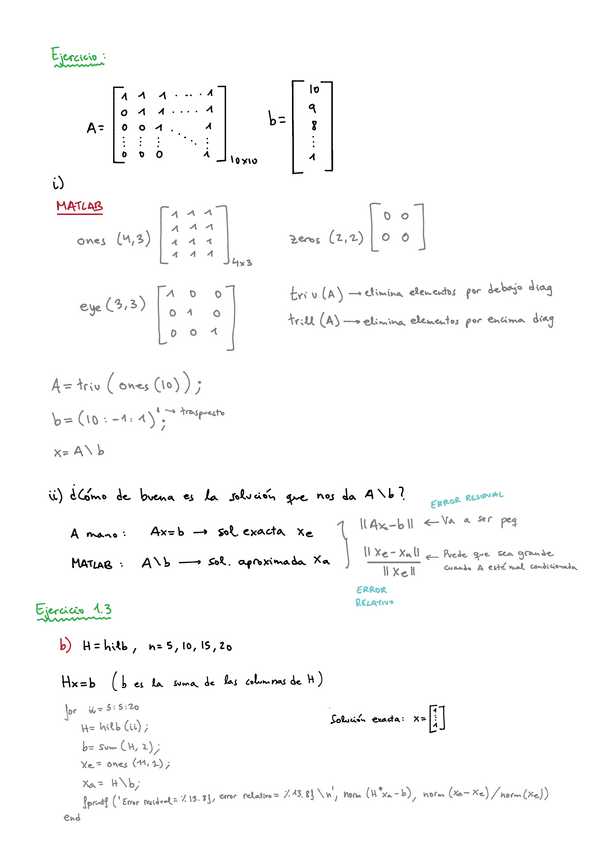 Ejercicio:
A= [1 1 1 ..... 1
0 1 1 ..... 1
0 0 1 ..... 1
⋮ ⋮ ⋮
0 0 0 1] 10x10
b= [10
9
8
⋮
1]
i)
MATLAB
ones (4,3) [1 1 1
1 1 1
1 1 1
1 1 1] 4x3
zeros (2,2) [0 0
0 0]
eye (3,3) [1 0 0
0 1 0
0 0 1]
triu (A) → elimina elementos por debajo diag
trill (A) → elimina elementos por encima diag
A = triu (ones (10));
b = (10 : -1 : 1)'; → traspuesto
x = A\b
ii) ¿Cómo de buena es la solución que nos da A\b?
ERROR RESIDUAL
A mano: Ax=b → sol exacta xe
||Axa-b|| ← Va a ser peq
MATLAB: A\b → sol. aproximada xa
||xe-xa|| / ||xe|| ← Puede que sea grande
cuando A esté mal condicionada
ERROR
RELATIVO
Ejercicio 1.3
b) H=hilb, n= 5, 10, 15, 20
Hx=b (b es la suma de las columnas de H)
for ii = 5:5:20
Solución exacta: x= [1
⋮
1]
H= hilb (ii);
b= sum (H, 2);
xe = ones (ii, 1);
xa = H\b;
fprintf ('Error residual= %13.8f, error relativo = %13.8f \n', norm (H*xa-b), norm (xa-xe)/norm(xe))
end